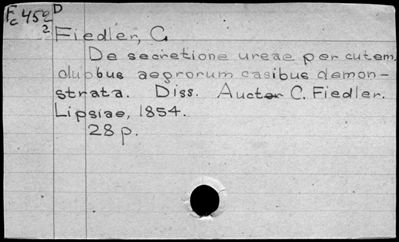 Fc 450 D
2
Fiedler, C.
De secretione ureae per cutem,
duobus aegrorum casibus demon-
strata. Diss. Auctor C. Fiedler.
Lipsiae, 1854.
28 p.